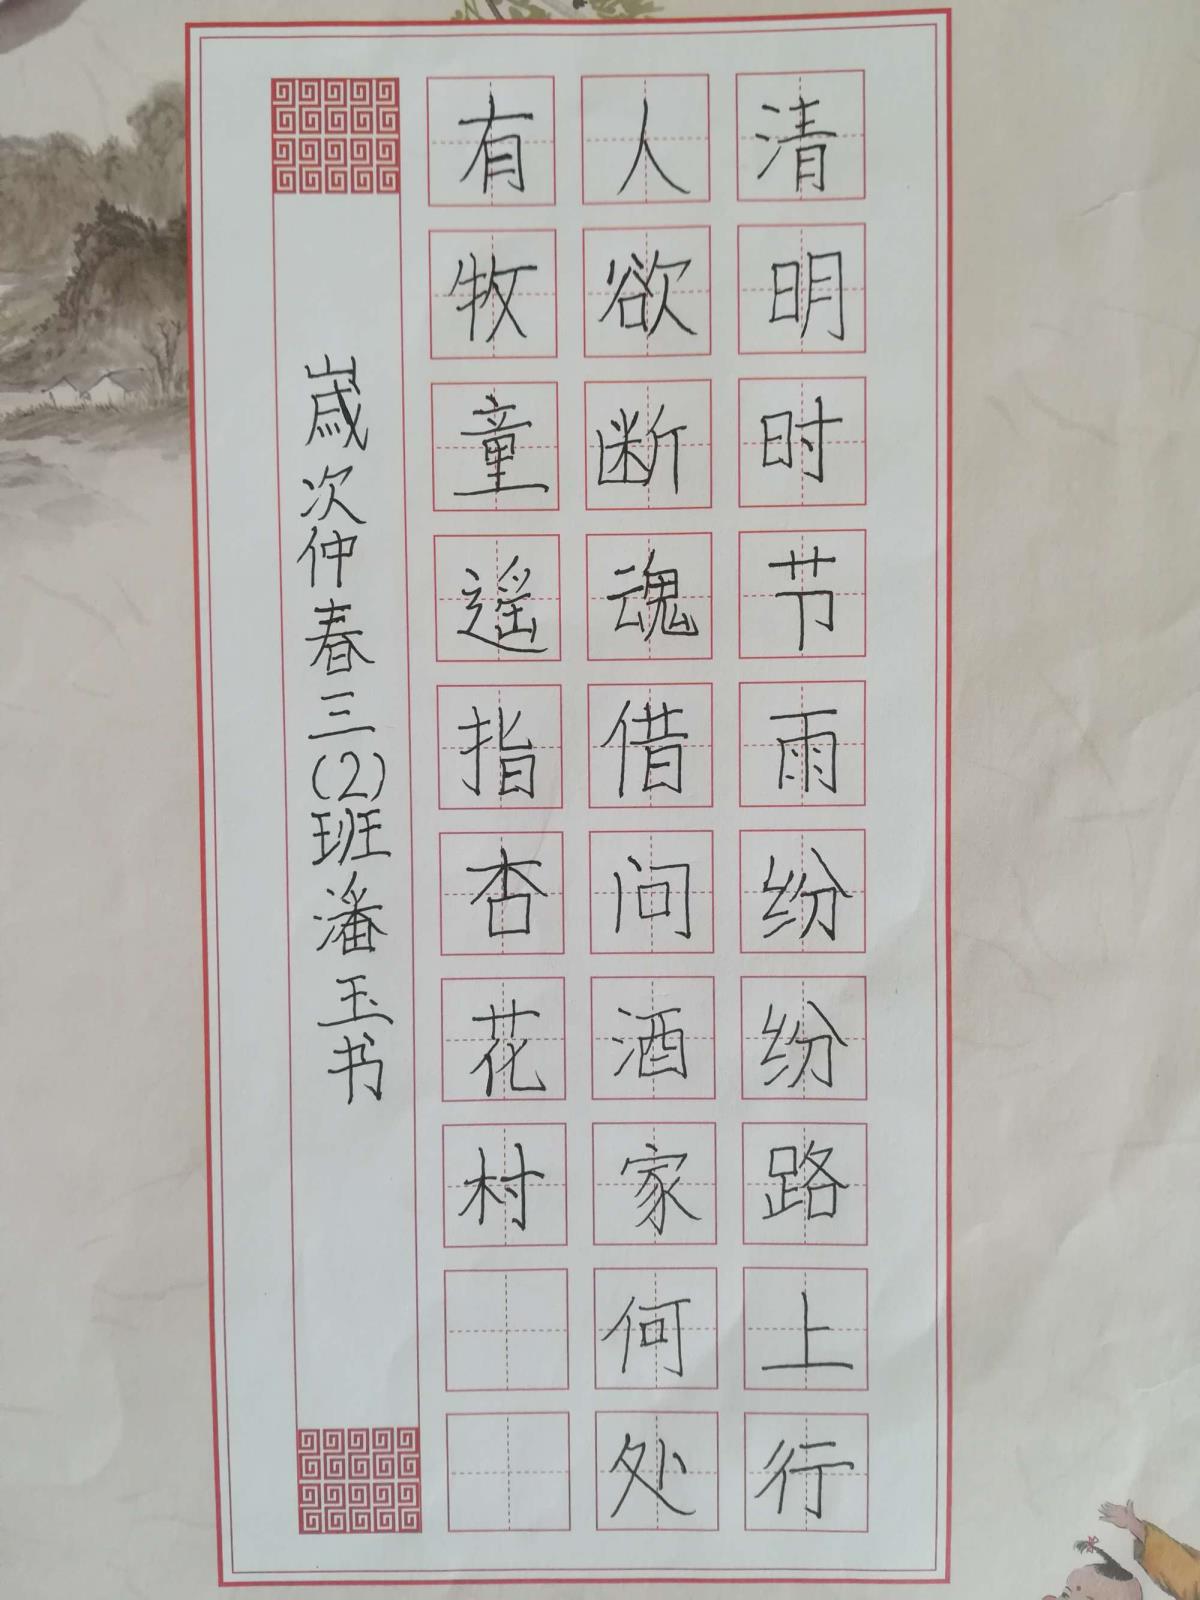 清明时节雨纷纷路上行
人欲断魂借问酒家何处
有牧童遥指杏花村
歳次仲春三(2)班潘玉书